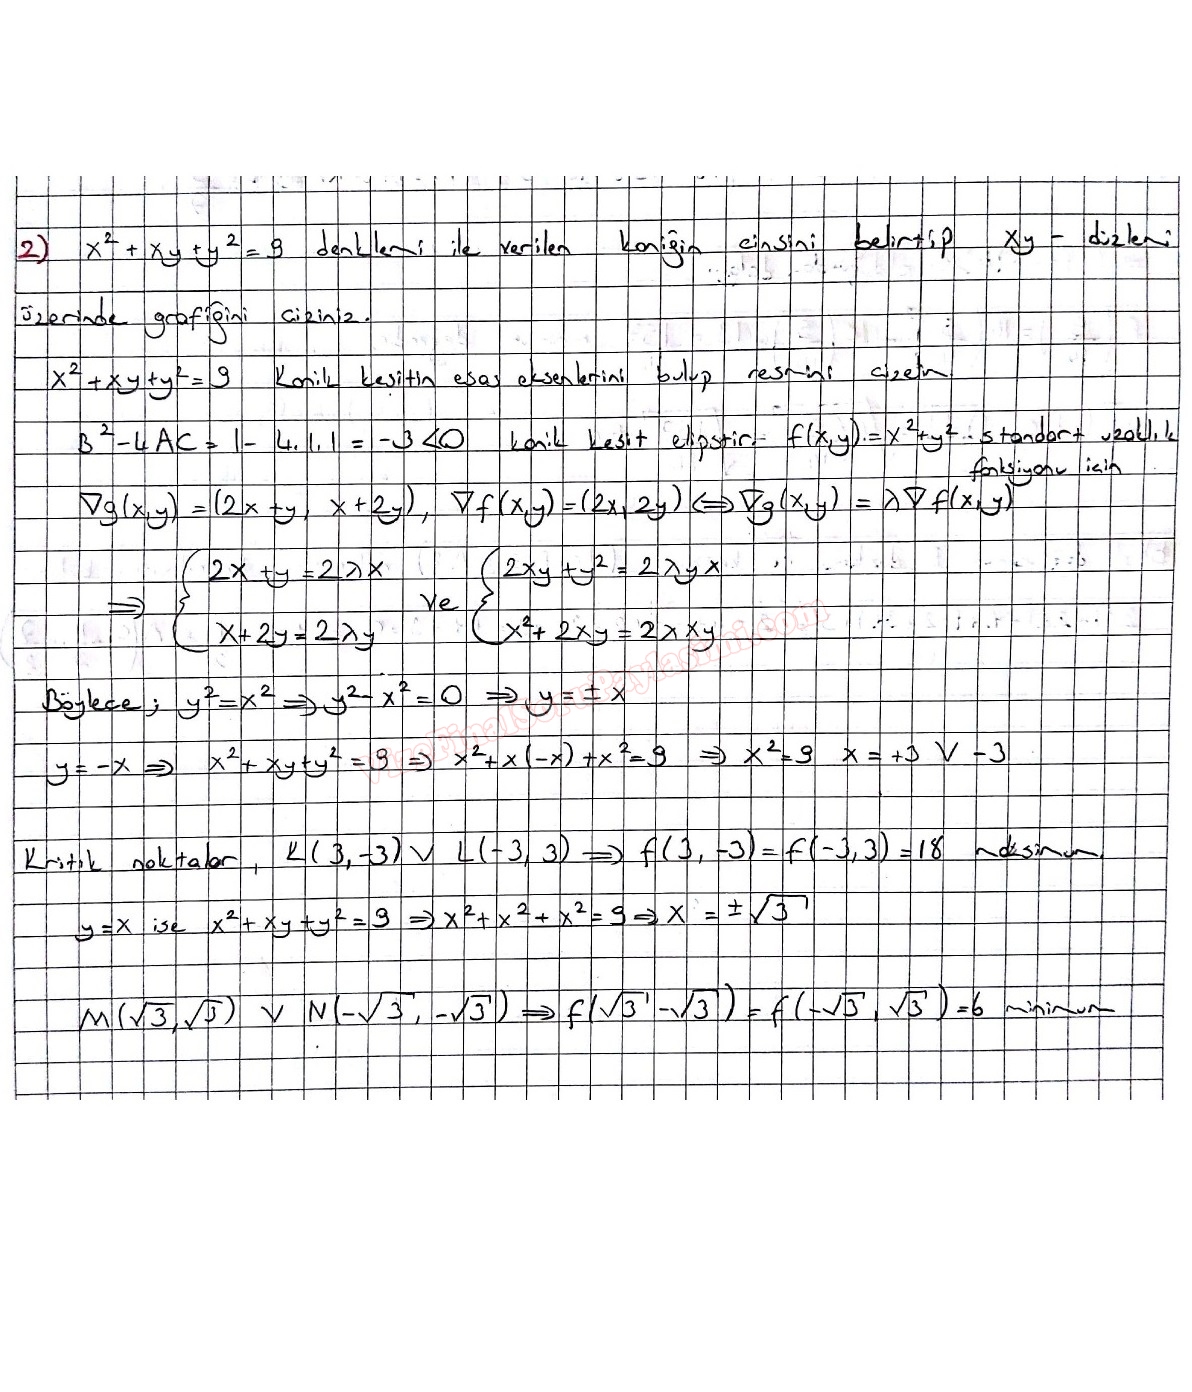 2) x² + xy + y² = 9 denklemi ile verilen koniğin cinsini belirtip xy - düzlemi
üzerinde grafiğini çiziniz.
x² + xy + y² = 9 Konik kesitin esas eksenlerini bulup resmini çizelim
B² - 4AC = 1 - 4.1.1 = -3 < 0 konik kesit elipstir. f(x,y) = x² + y² standart uzaklık
fonksiyonu için
∇g(x,y) = (2x + y, x + 2y), ∇f(x,y) = (2x, 2y) ⟺ ∇g(x,y) = λ∇f(x,y)
⇒ { 2x + y = 2λx ve { 2xy + y² = 2λyx
x + 2y = 2λy x² + 2xy = 2λxy
Böylece; y² = x² ⇒ y² - x² = 0 ⇒ y = ± x
y = -x ⇒ x² + xy + y² = 9 ⇒ x² + x(-x) + x² = 9 ⇒ x² = 9 x = +3 V -3
Kritik noktalar, K(3, -3) V L(-3, 3) ⇒ f(3, -3) = f(-3, 3) = 18 maksimum,
y = x ise x² + xy + y² = 9 ⇒ x² + x² + x² = 9 ⇒ x = ± √3
M(√3, √3) V N(-√3, -√3) ⇒ f(√3 -√3) = f(-√3, √3) = 6 minimum
VizeFinalSoruPaylasimi.com